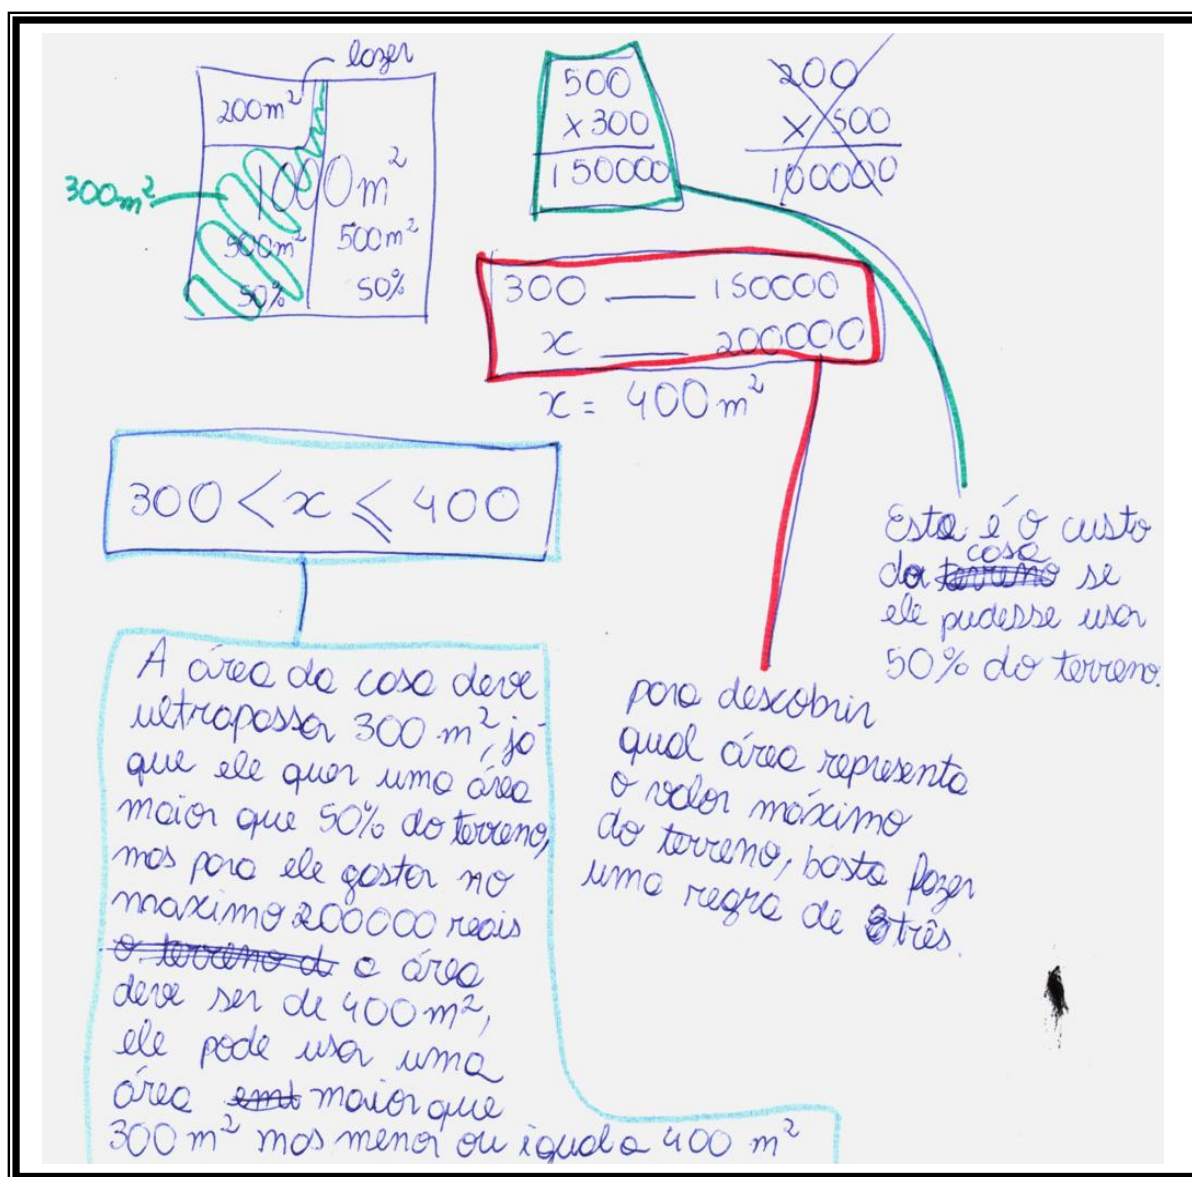 lazer
200m²
300m²
1000m²
500m²
500m²
50%
50%
500
x 300
150000
200
x 500
100000
300 ___ 150000
x ___ 200000
x = 400m²
300 < x ≤ 400
Esta é o custo
da terreno casa se
ele pudesse usar
50% do terreno.
para descobrir
qual área representa
o valor máximo
do terreno, basta fazer
uma regra de três.
A área da casa deve
ultrapassar 300 m², já
que ele quer uma área
maior que 50% do terreno,
mas para ele gastar no
maximo 200000 reais
o terreno d a área
deve ser de 400 m²,
ele pode usar uma
área maior que
300 m² mas menor ou igual a 400 m²